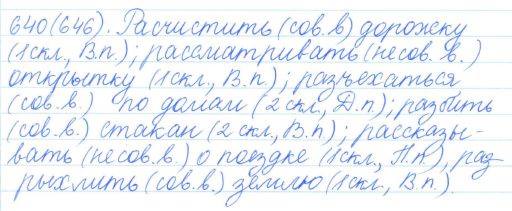 640(646). Расчистить (сов.в) дорожку
(1скл., В.п.); рассматривать (несов. в.)
открытку (1скл., В.п.); разъехаться
(сов.в.) по домам (2скл., Д.п); разбить
(сов.в.) стакан (2скл., В.п); рассказы-
вать (несов.в.) о поездке (1скл., П.п.), раз
рыхлить (сов.в.) землю (1скл., В.п.).